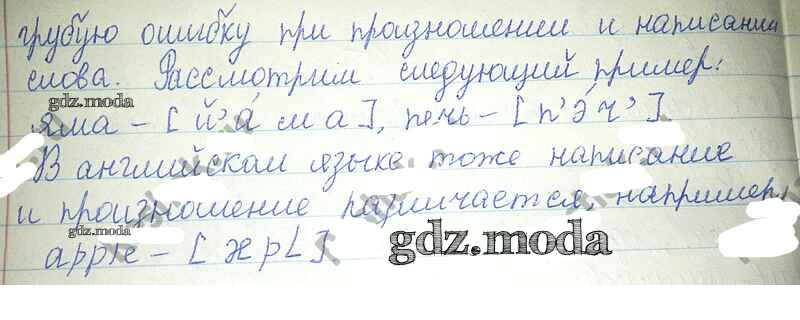 грубую ошибку при произношении и написании
слова. Рассмотрим следующий пример:
gdz.moda
яма – [й'á м а], печь – [п'э́ ч']
В английском языке тоже написание
и произношение различается, например,
gdz.moda
apple – [æpL]
gdz.moda